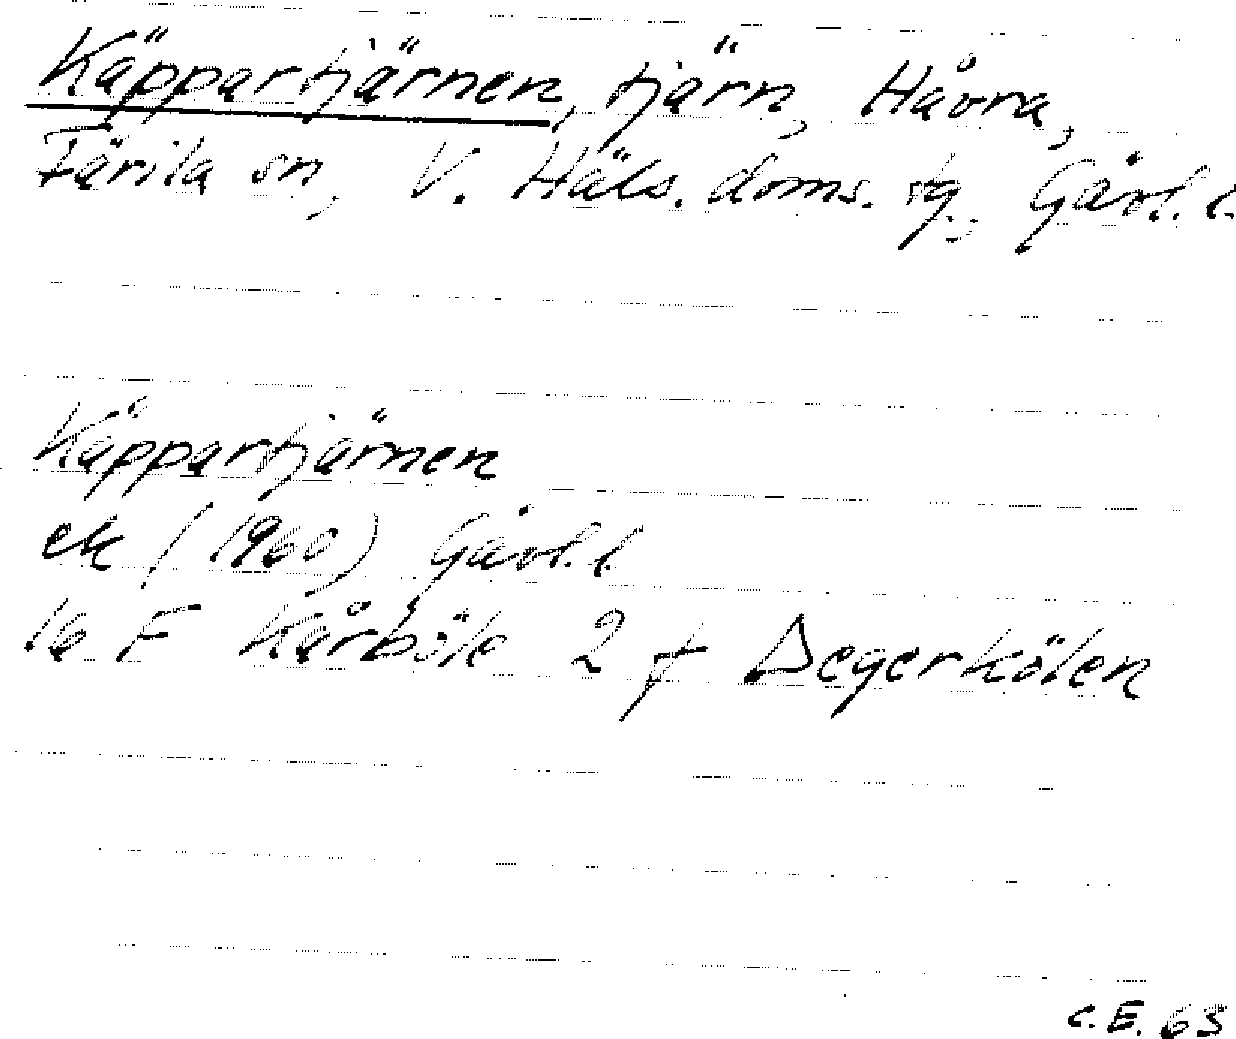 Käppartjärnen, tjärn, Håvra,
Färila sn, V. Häls. doms. sg., Gävl. l.
Käppartjärnen
ek (1960) Gävl. l.
16 F Kårböle 2 f Degerkölen
C. E. 63